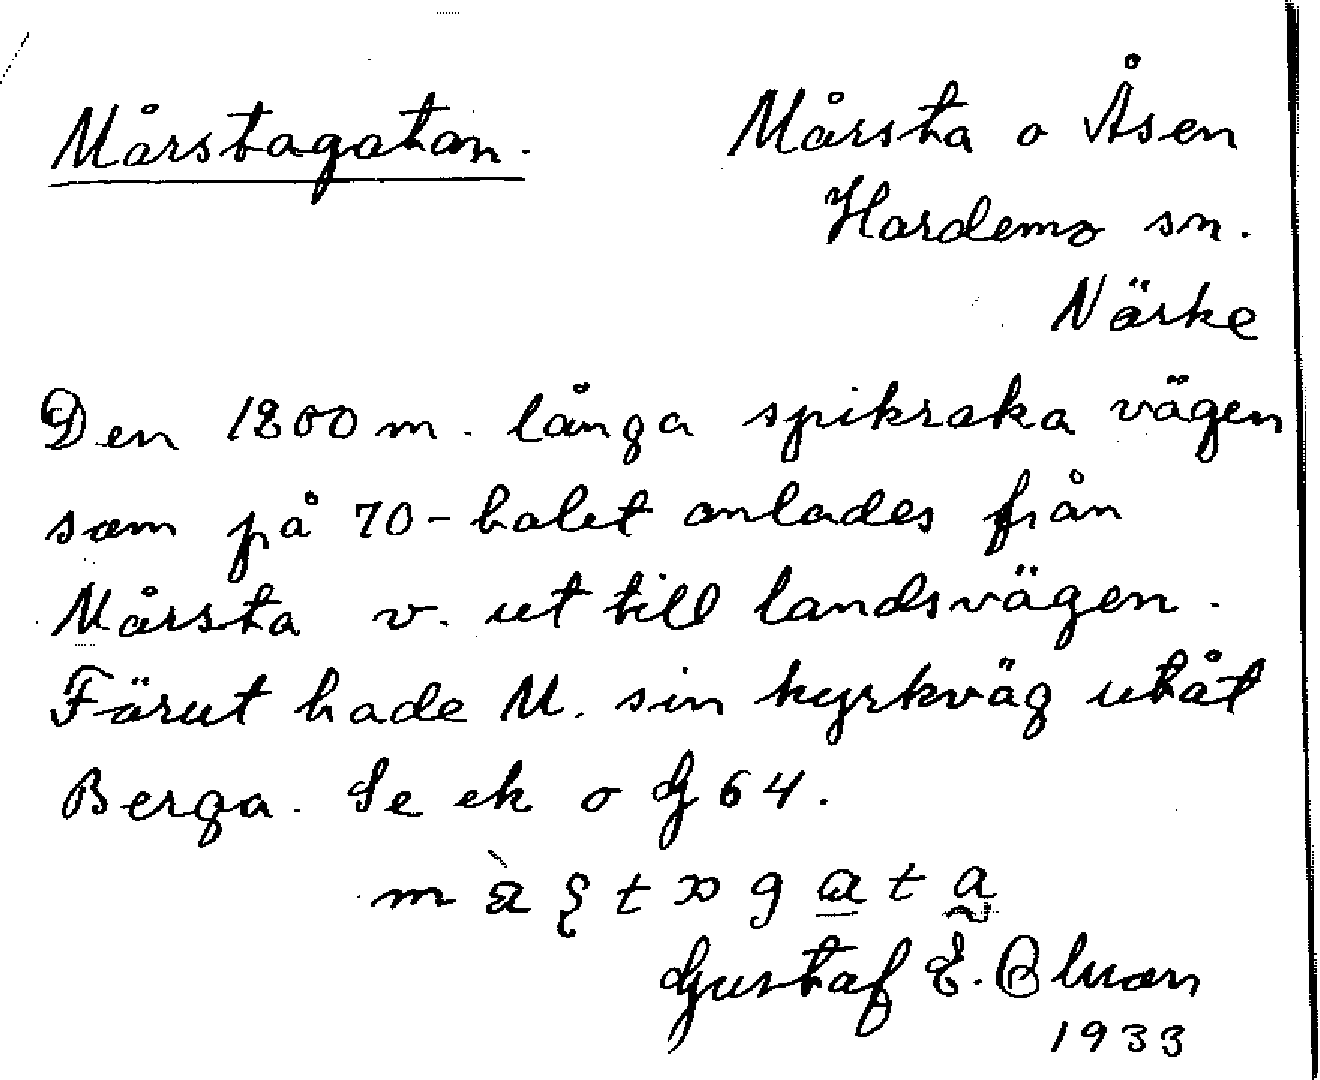 Mårstagatan.
Mårsta o Åsen
Hardemo sn.
Närke
Den 1200 m. långa spikraka vägen
som på 70-talet anlades från
Mårsta v. ut till landsvägen.
Förut hade M. sin kyrkväg utåt
Berga. Se ek o G 64.
Gustaf E.
1933